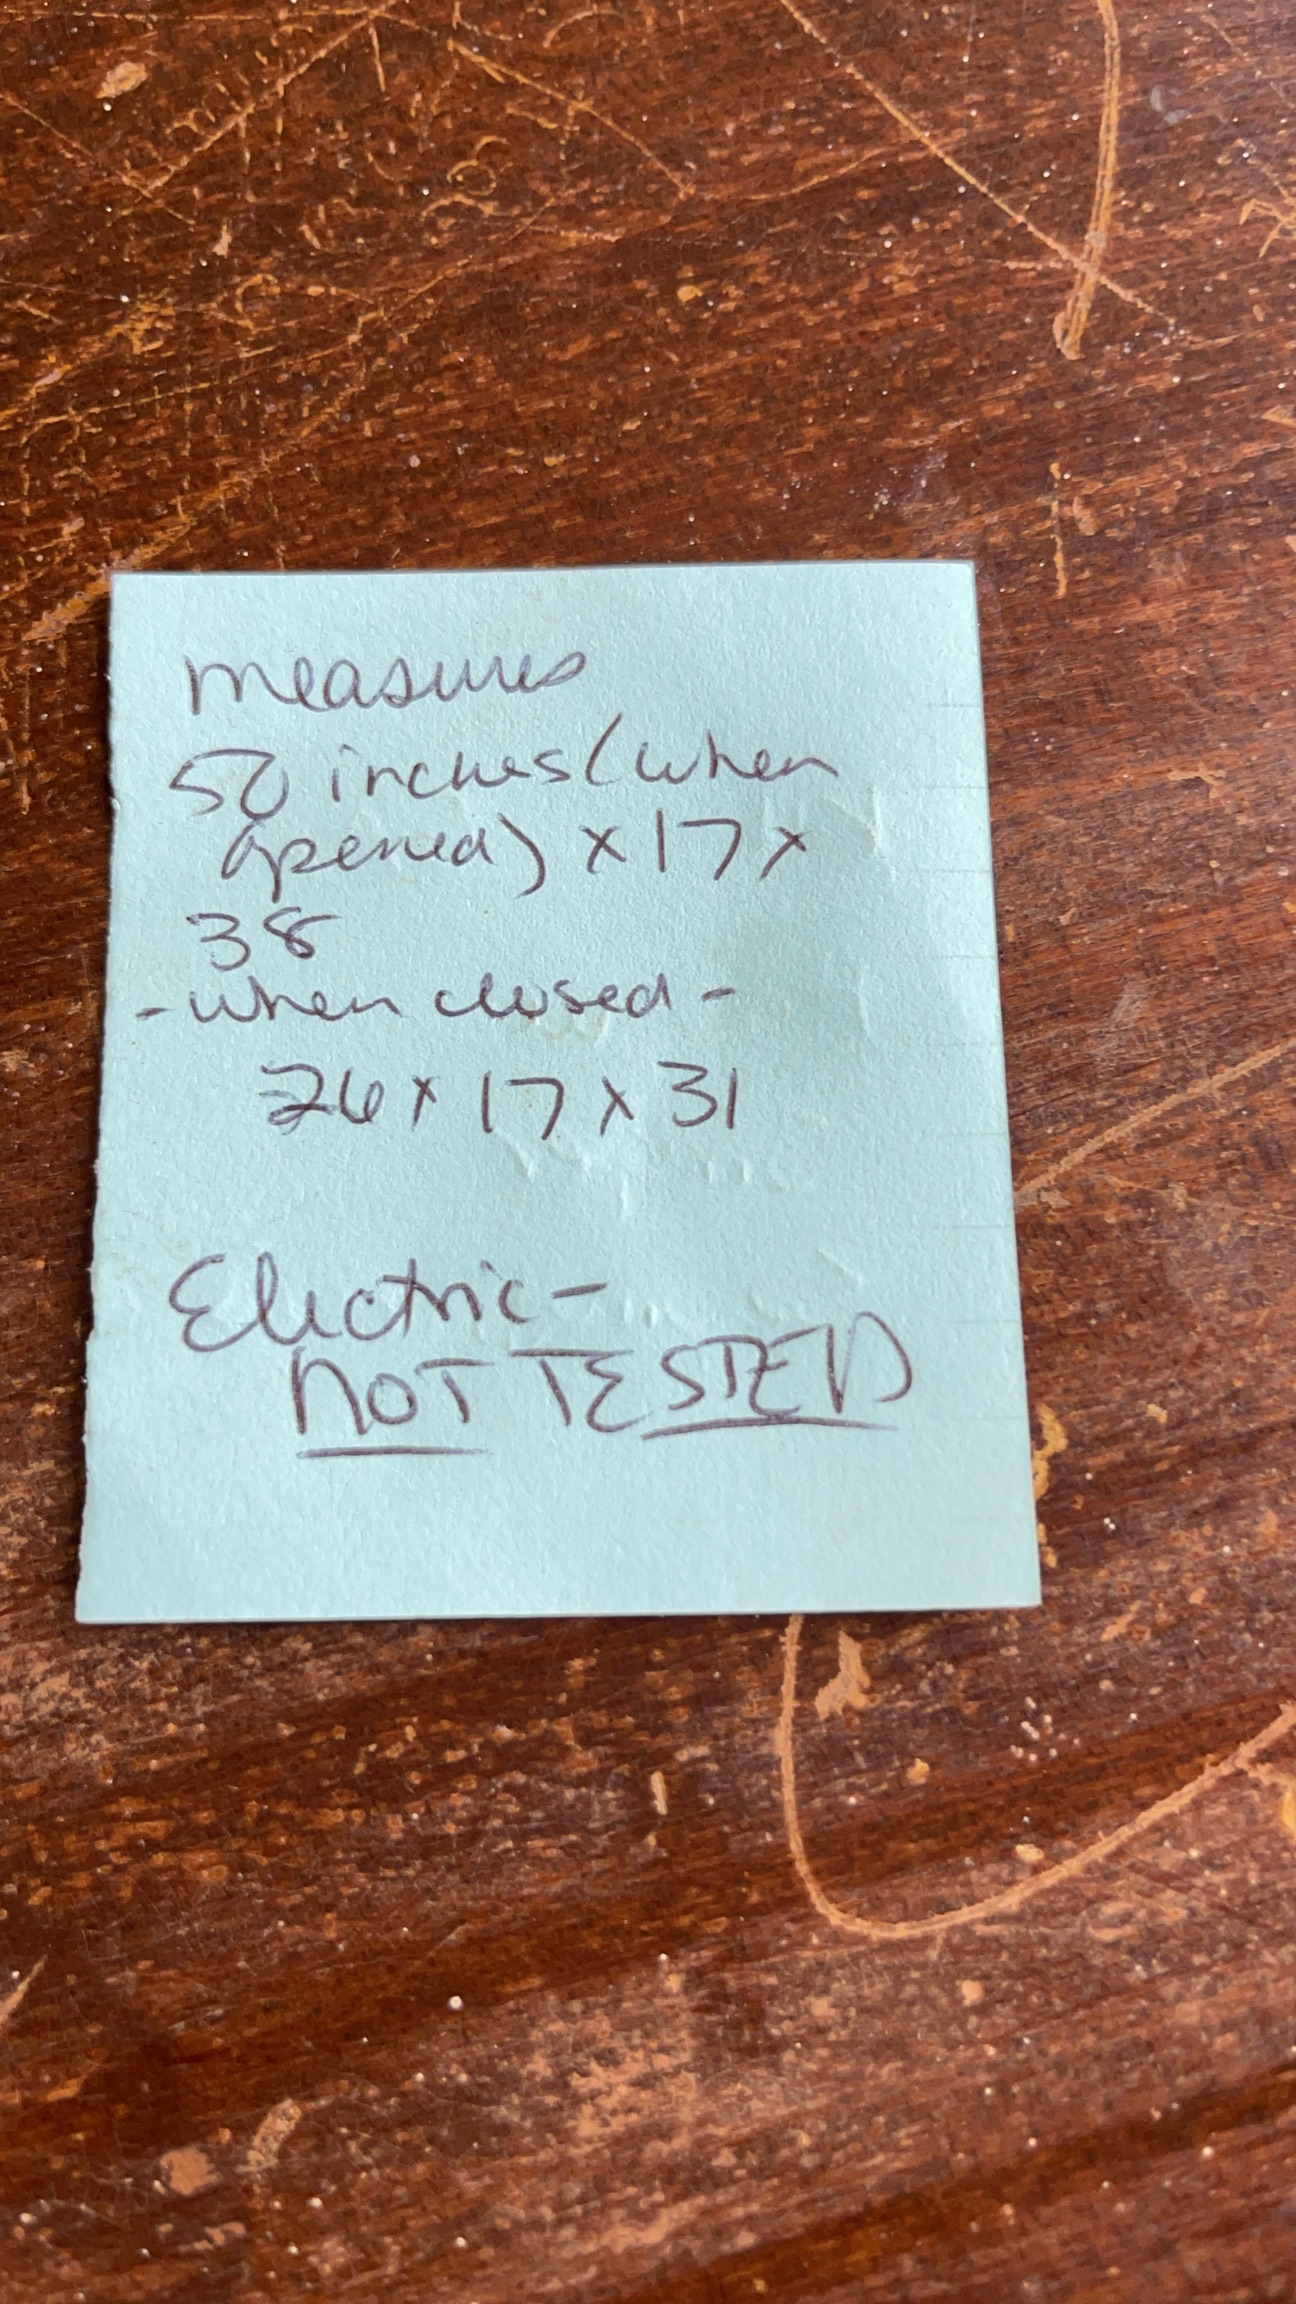 measures
50 inches (when
opened) x 17 x
38
- when closed -
26 x 17 x 31
Electric -
NOT TESTED